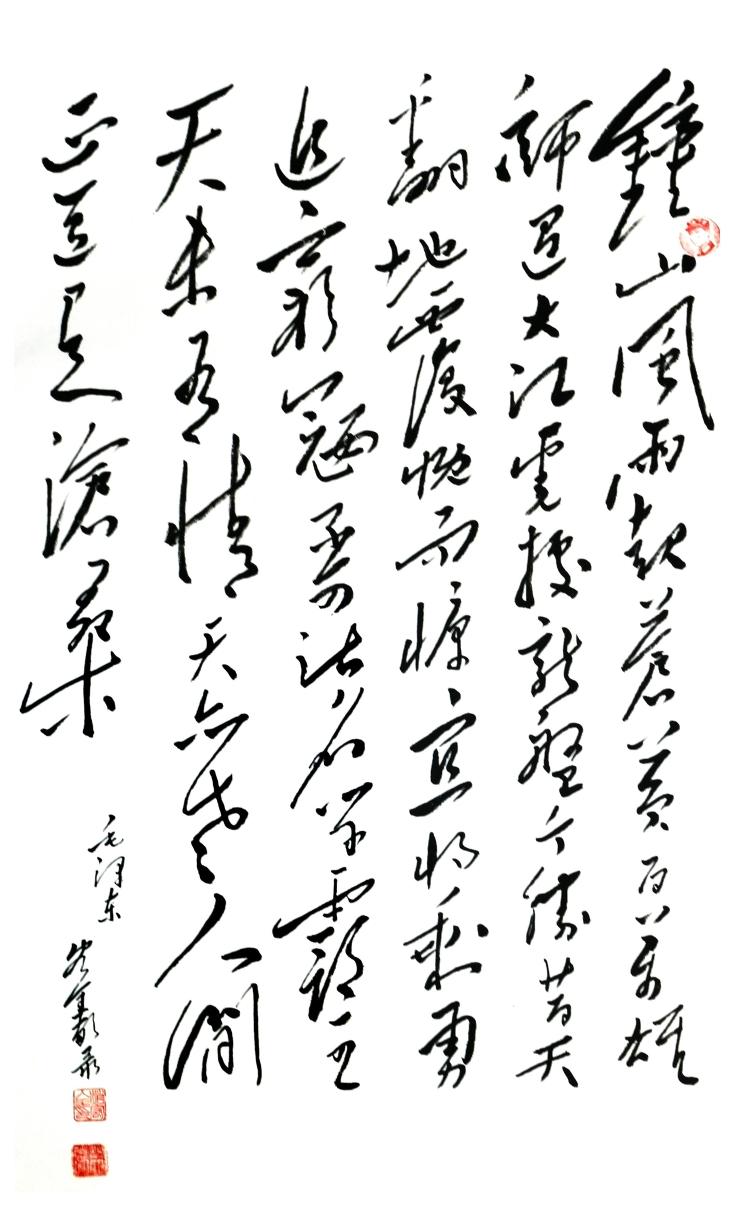 鐘山風雨起蒼黃百萬雄
師過大江虎據龍盤今勝昔天
翻地覆慨而慷宜將剩勇
追窮寇不可沽名學霸王
天若有情天亦老人間
正道是滄桑
毛泽东